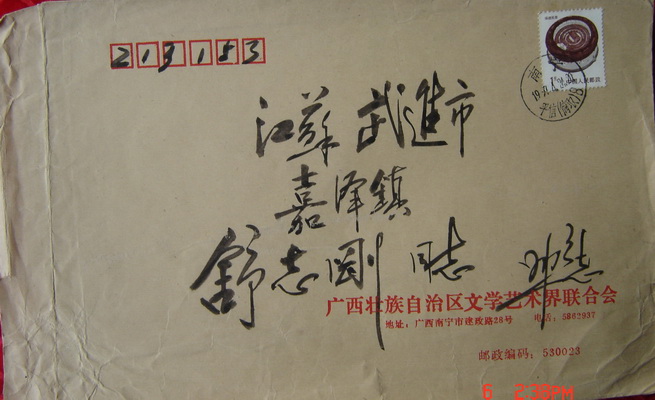 213153
江蘇 武進市
嘉泽鎮
舒志剛 同志
广西壮族自治区文学艺术界联合会
地址：广西南宁市建政路28号 电话：5862937
邮政编码：530023
6 2:38PM